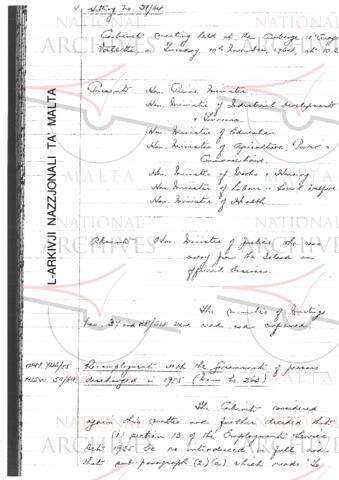 Sitting No. 39/64
Cabinet meeting held at the Auberge d'
Valletta on Tuesday 10th November, 1964, at 10.
Present: Hon. Prime Minister
Hon. Minister of Industrial Development
& Tourism
Hon. Minister of Education
Hon. Minister of Agriculture, Power &
Communications.
Hon. Minister of Works & Housing
Hon. Minister of Labour & Social Welfare
Hon. Minister of Health
Absent: Hon. Minister of Justice who was
away from the Island on
official business.
The minutes of Sittings
Nos. 37 and 38/64 were read and confirmed
OPM. 744/55
MLSW. 59/64
Re-employment with the Government of persons
discharged in 1955 (Memo No. 263)
The Cabinet considered
again this matter and further decided that
(1) section 13 of the Employment Service
Act 1955 be re introduced in full and
that sub-paragraph (2)(a) which reads "to
L-ARKIVJI NAZZJONALI TA' MALTA
NATIONAL
ARCHIVES
MALTA